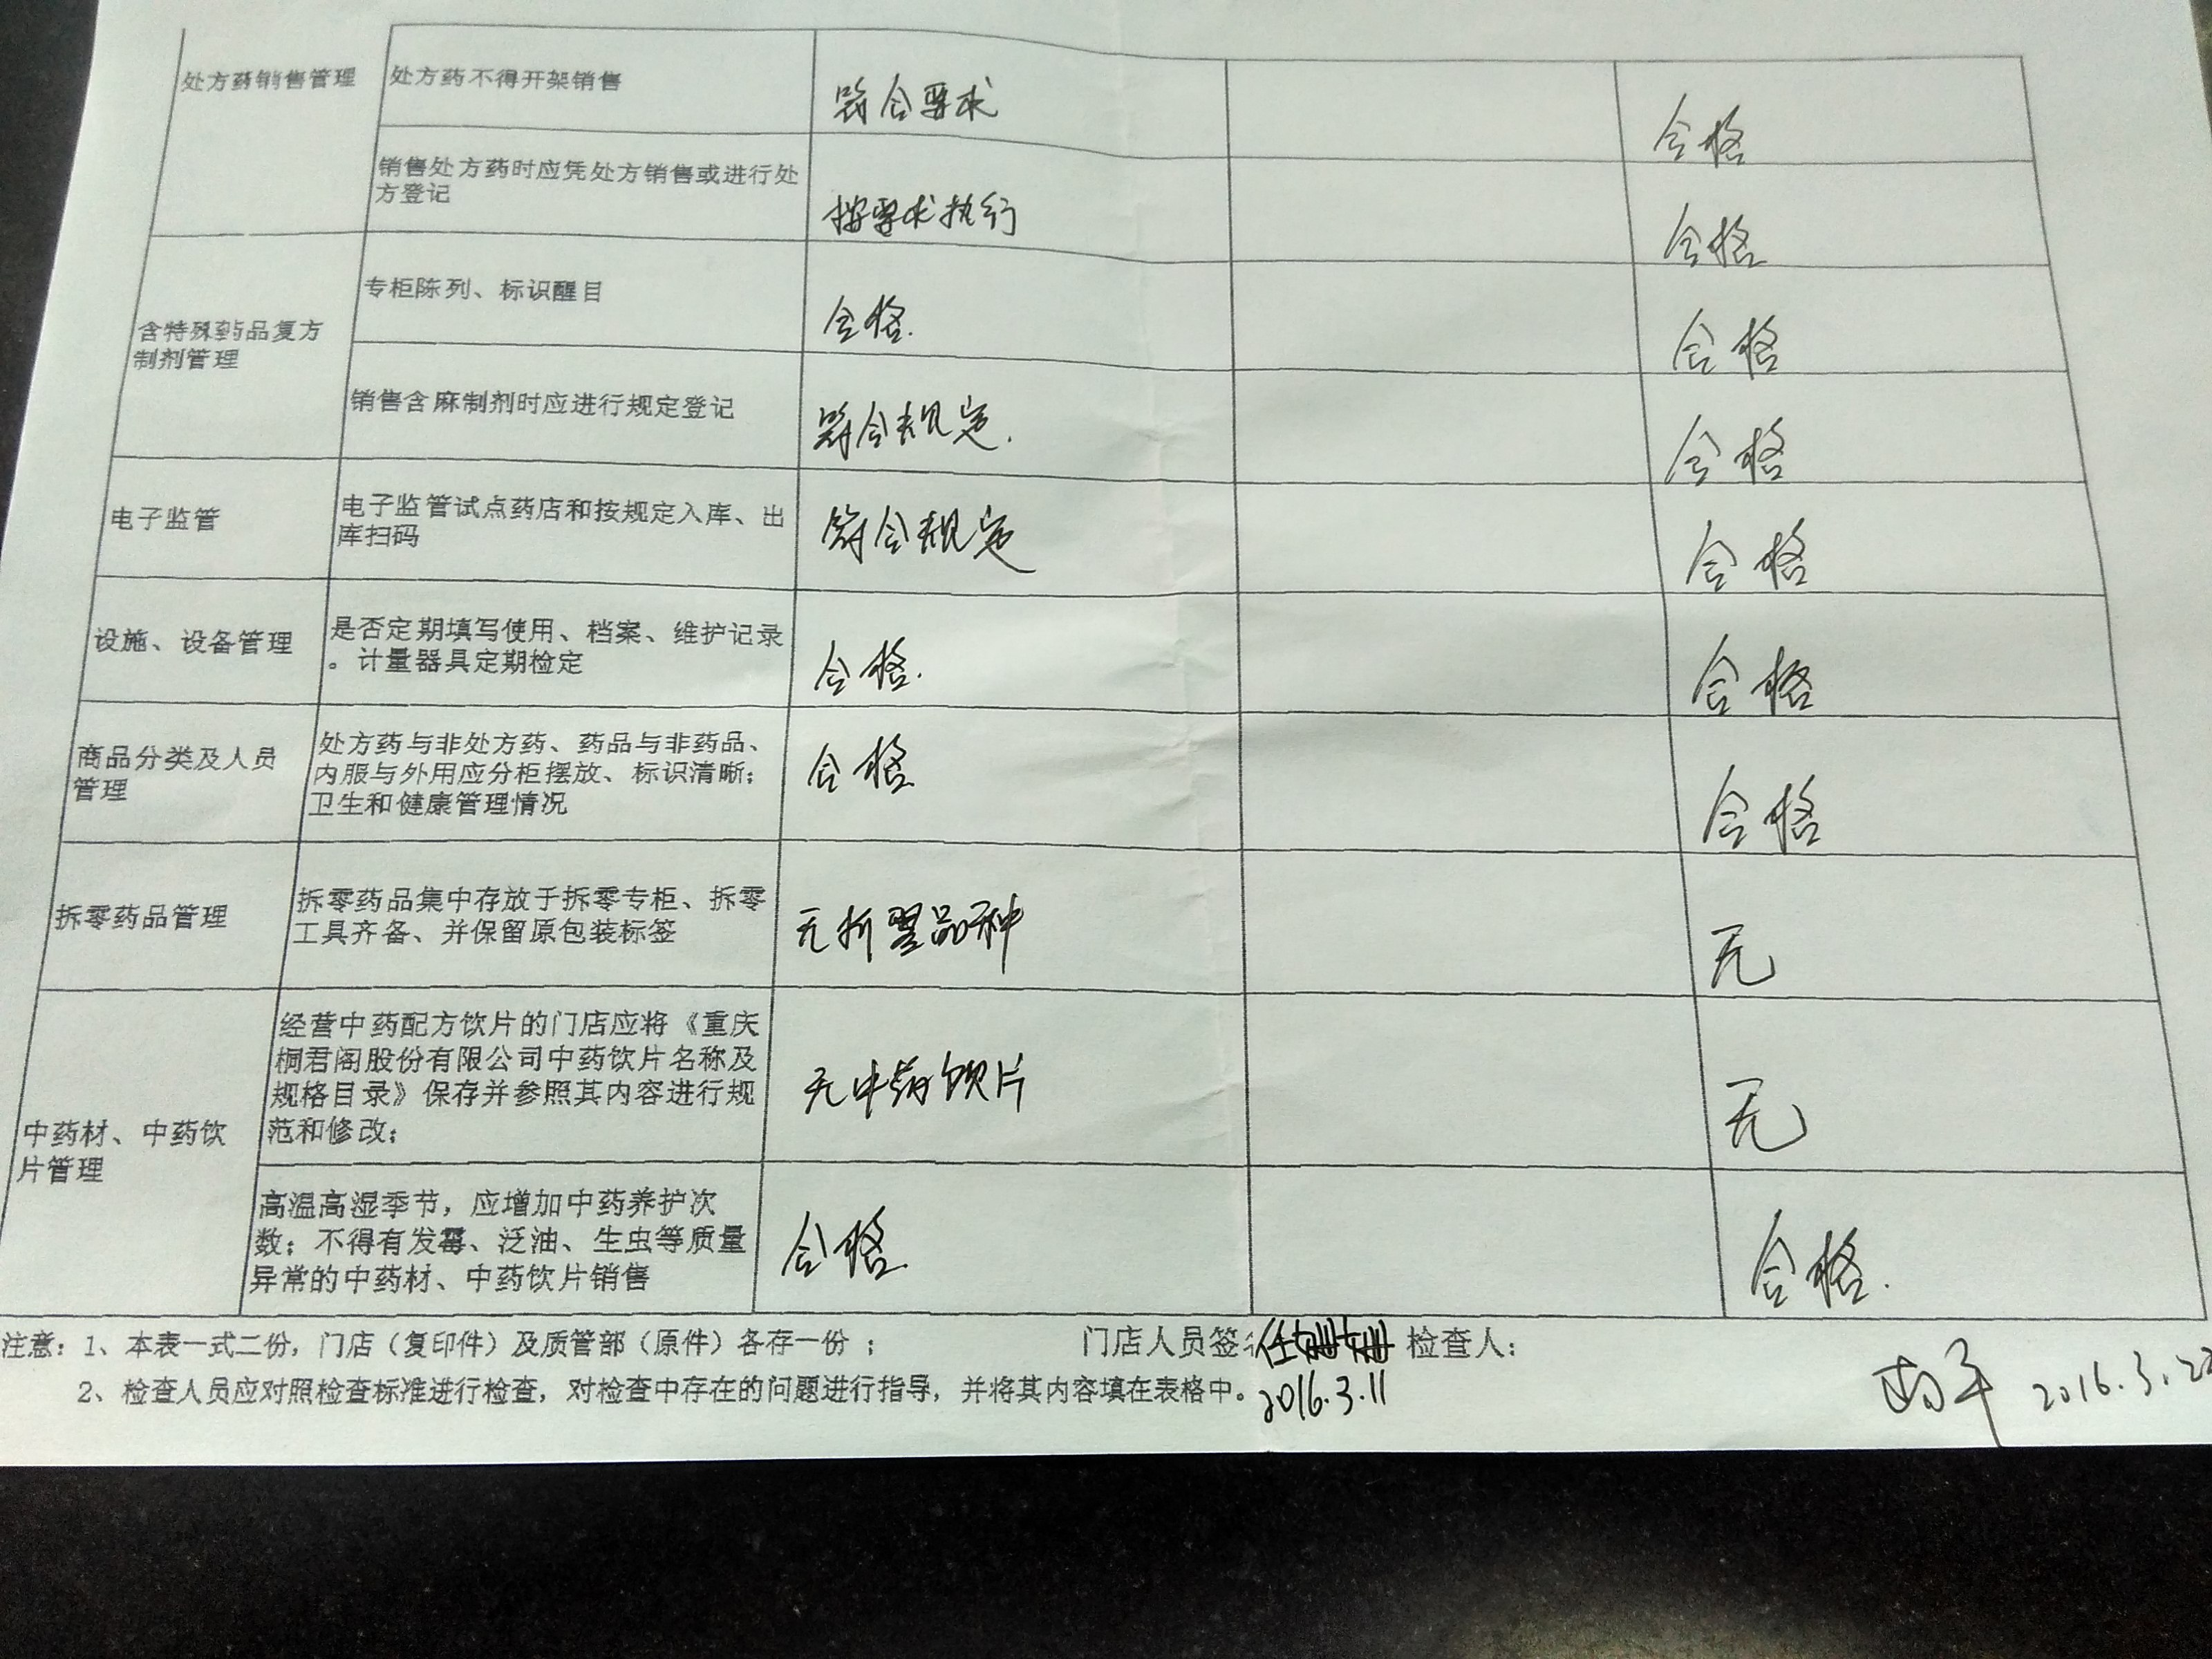 处方药销售管理
处方药不得开架销售
符合要求
合格
销售处方药时应凭处方销售或进行处
方登记
按要求执行
合格
含特殊药品复方
制剂管理
专柜陈列、标识醒目
合格.
合格
销售含麻制剂时应进行规定登记
符合规定.
合格
电子监管
电子监管试点药店和按规定入库、出
库扫码
符合规定
合格
设施、设备管理
是否定期填写使用、档案、维护记录
。计量器具定期检定
合格.
合格
商品分类及人员
管理
处方药与非处方药、药品与非药品、
内服与外用应分柜摆放、标识清晰；
卫生和健康管理情况
合格
合格
拆零药品管理
拆零药品集中存放于拆零专柜、拆零
工具齐备、并保留原包装标签
无拆零品种
无
中药材、中药饮
片管理
经营中药配方饮片的门店应将《重庆
桐君阁股份有限公司中药饮片名称及
规格目录》保存并参照其内容进行规
范和修改；
无中药饮片
无
高温高湿季节，应增加中药养护次
数；不得有发霉、泛油、生虫等质量
异常的中药材、中药饮片销售
合格.
合格.
注意：1、本表一式二份，门店（复印件）及质管部（原件）各存一份 ；
门店人员签 任姗姗 检查人：
2、检查人员应对照检查标准进行检查，对检查中存在的问题进行指导，并将其内容填在表格中。
2016.3.11
2016.3.22